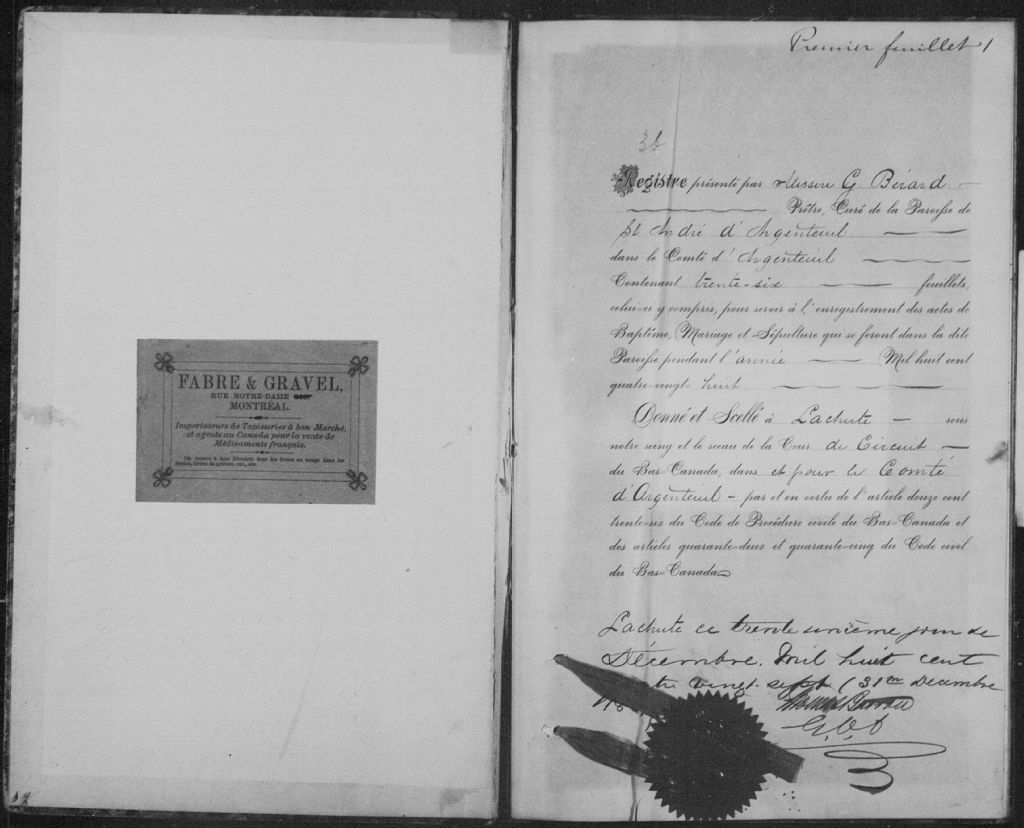 FABRE & GRAVEL,
RUE NOTRE-DAME
MONTRÉAL.
Importateurs de Tapisseries à bon Marché,
et agents au Canada pour la vente de
Médicaments français.
On trouve à leur librairie tous les livres en usage dans les
écoles, livres de prières, etc., etc.
Premier feuillet 1
36
Registre présenté par Messire G Bérard
Prêtre, Curé de la Paroisse de
St André d'Argenteuil
dans le Comté d'Argenteuil
Contenant trente-six feuillets,
celui-ci y compris, pour servir à l'enregistrement des actes de
Baptême, Mariage et Sépulture qui se feront dans la dite
Paroisse pendant l'année Mil huit cent
quatre-vingt huit
Donné et Scellé à Lachute sous
notre seing et le sceau de la Cour de Circuit
du Bas-Canada, dans et pour le Comté
d'Argenteuil - par et en vertu de l'article douze cent
trente-six du Code de Procédure civile du Bas-Canada et
des articles quarante-deux et quarante-cinq du Code civil
du Bas-Canada
Lachute ce trente unième jour de
Décembre. Mil huit cent
vingt-sept (31 Decembre